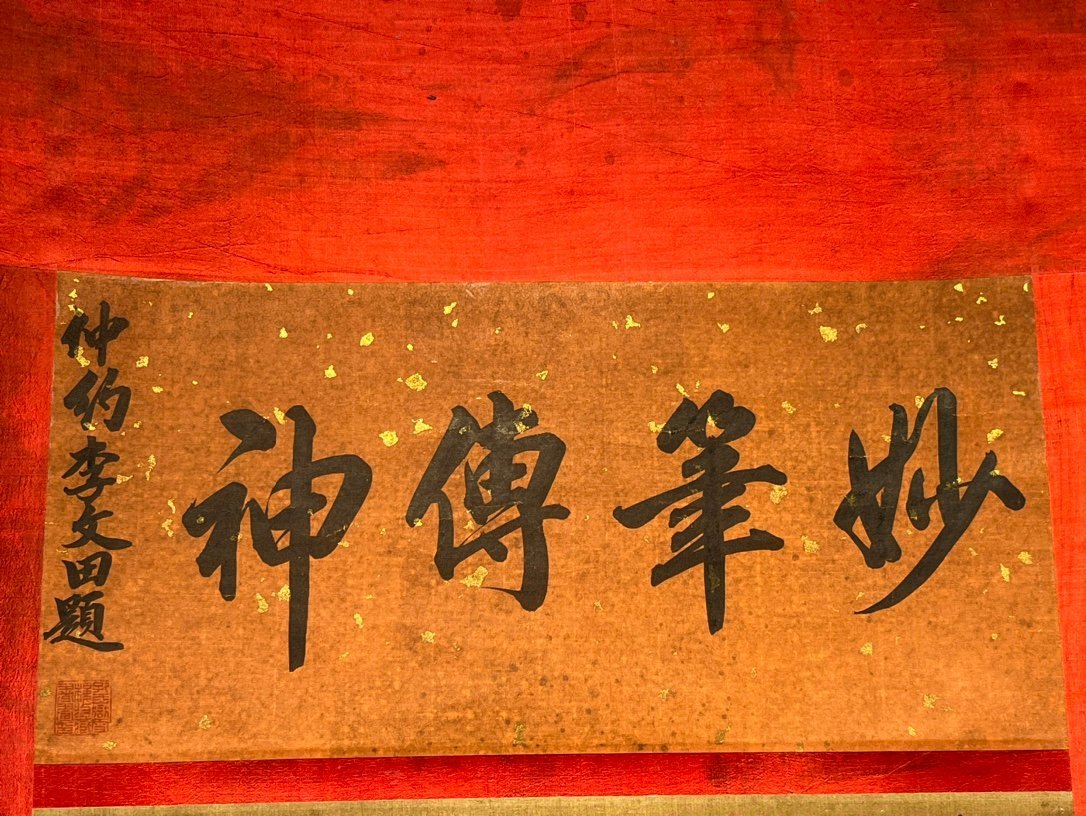 妙筆傳神
仲約李文田題